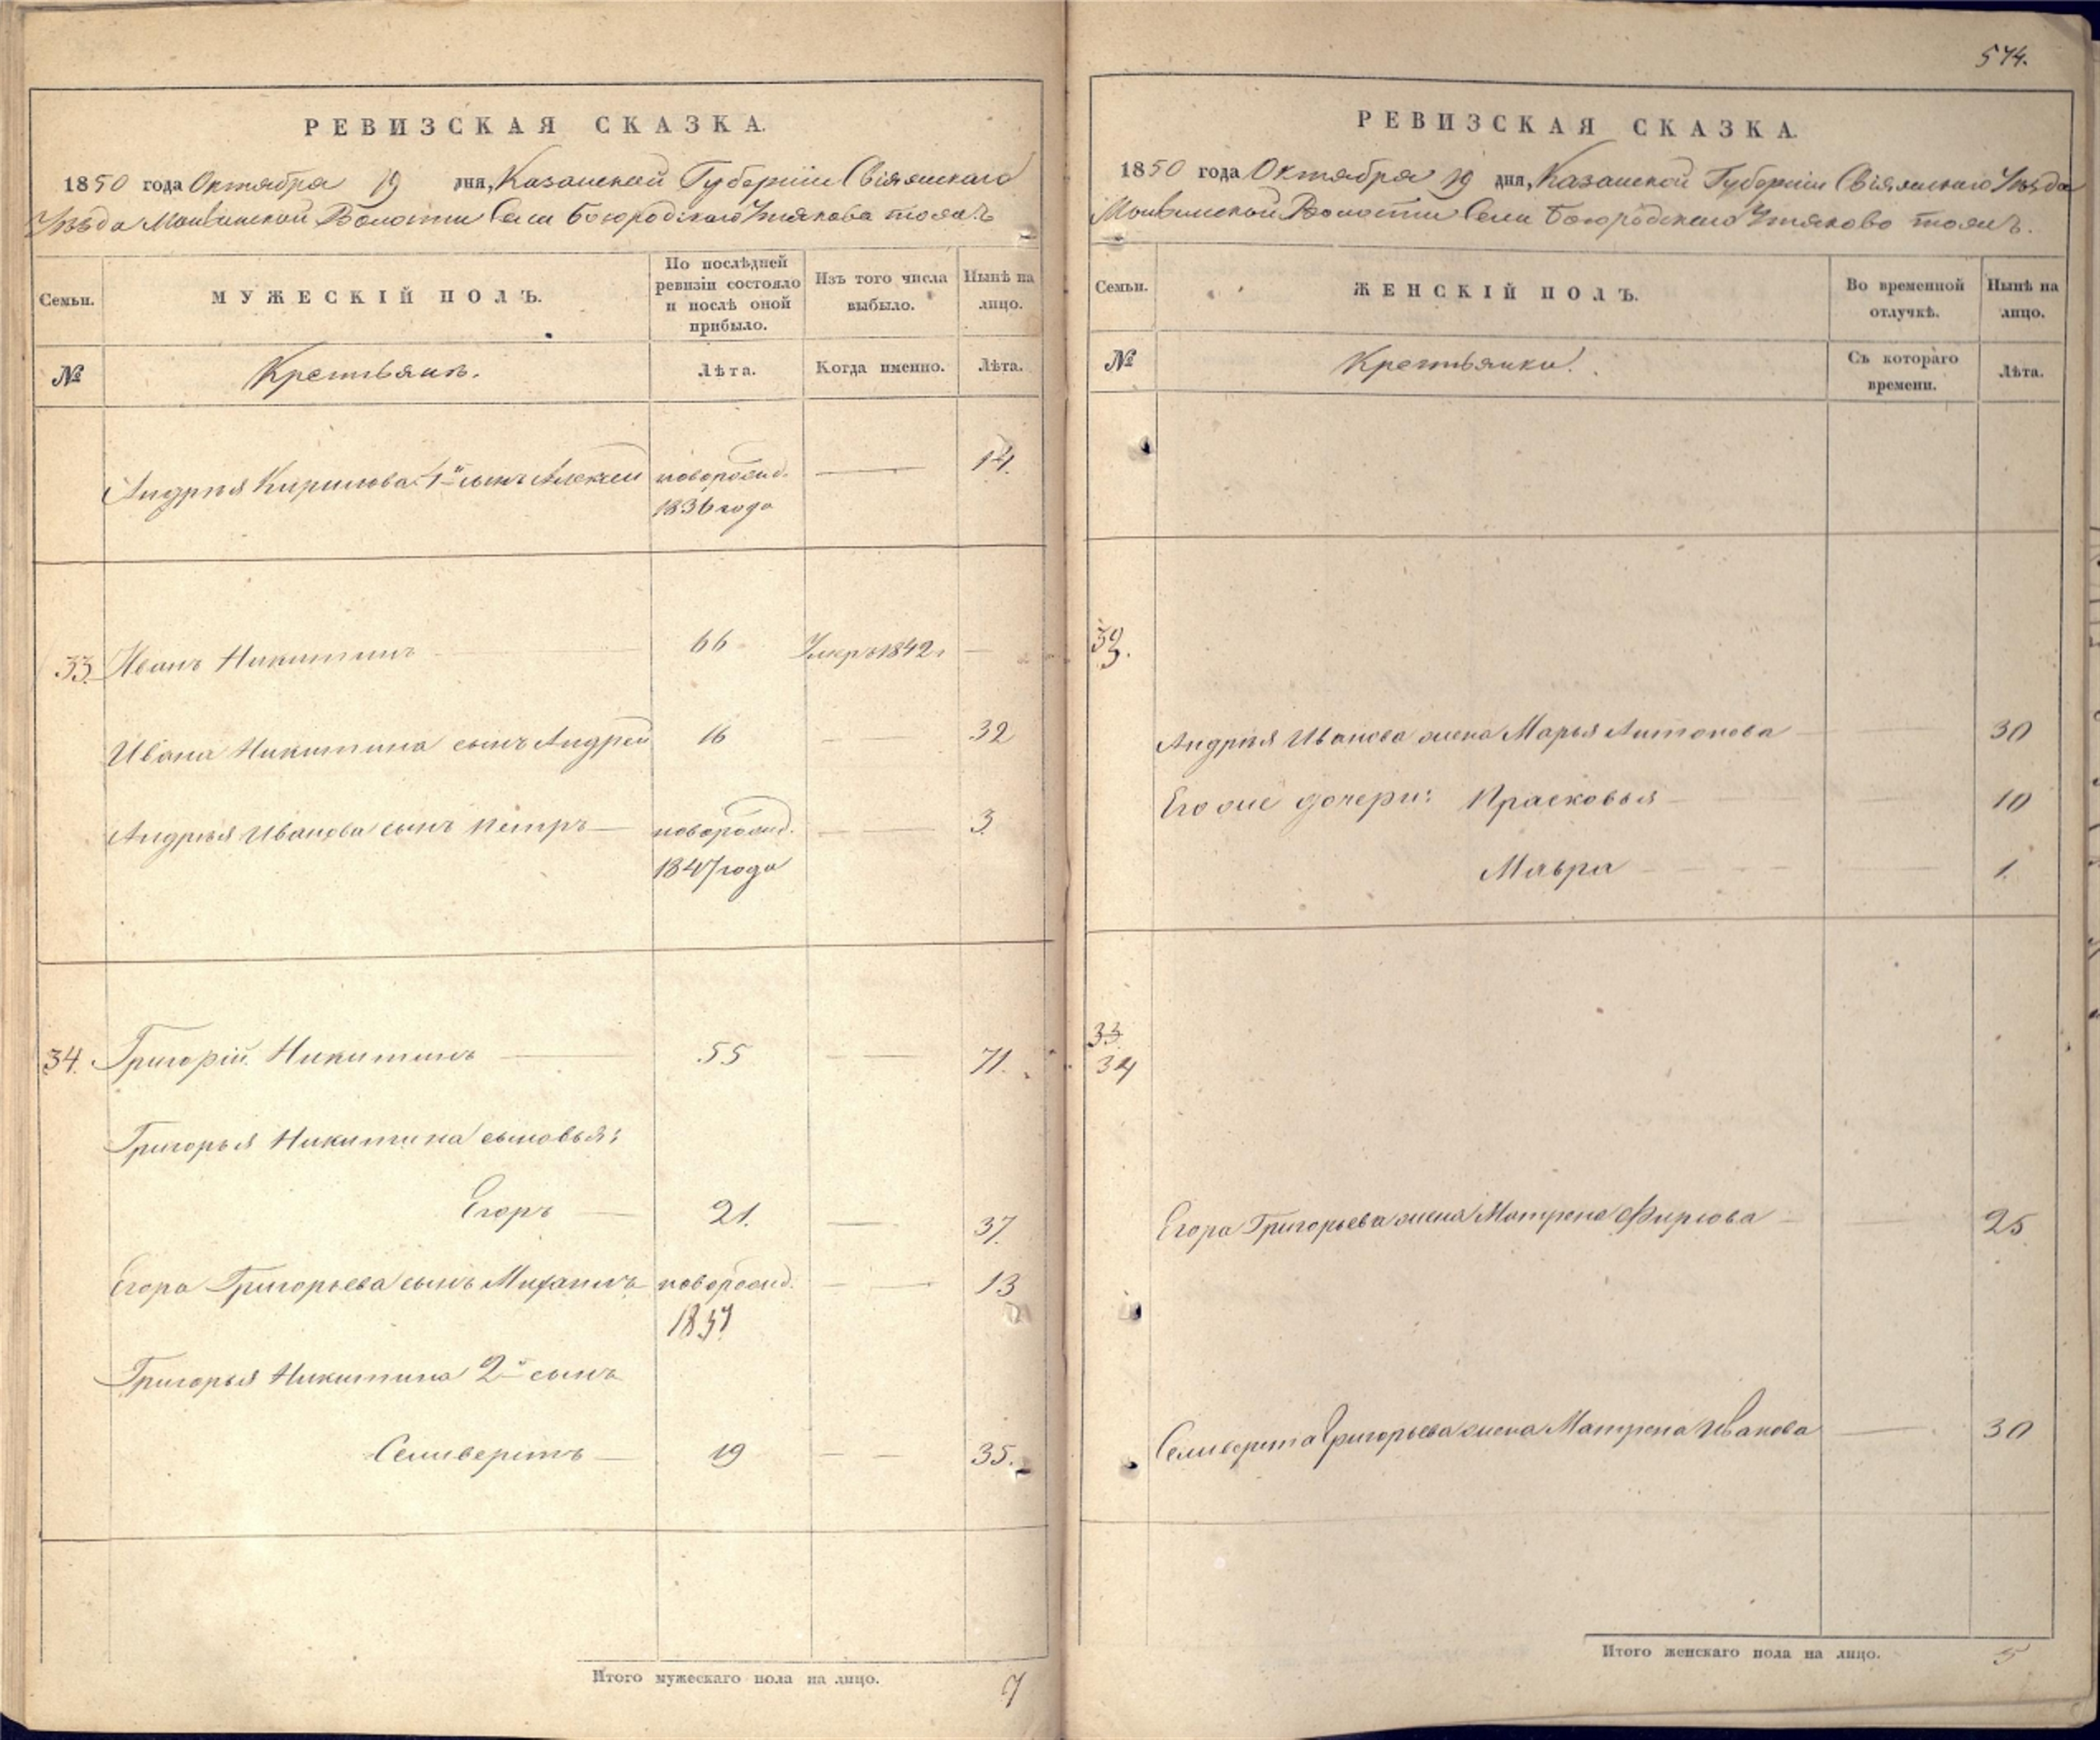 РЕВИЗСКАЯ СКАЗКА.
1850 года Октября 19 дня, Казанской Губерніи Свіяжскаго
Уѣзда Волости Села Богородскаго Утякова тожъ
Семьи.
МУЖЕСКІЙ ПОЛЪ.
По послѣдней
ревизіи состояло
и послѣ оной
прибыло.
Изъ того числа
выбыло.
Нынѣ на
лицо.
№
Крестьянъ.
Лѣта.
Когда именно.
Лѣта.
Андрѣя Кирилова 1й сынъ Алексей новорожд. — 14.
1836 года
33. Иванъ Никитинъ 66 Умеръ 1842 г —
Ивана Никитина сынъ Андрей 16 — 32
Андрѣя Иванова сынъ Петръ — новорожд. — 3
1847 года
34. Григорій Никитинъ — 55 — 71.
Григорья Никитина сыновья:
Егоръ — 21. — 37.
Егора Григорьева сынъ новорожд. — 13
1837
Григорья Никитина 2й сынъ
Селиверстъ — 19 — 35.
Итого мужескаго пола на лицо. 7
574.
РЕВИЗСКАЯ СКАЗКА.
1850 года Октября 19 дня, Казанской Губерніи Свіяжскаго Уѣзда
Волости Села Богородскаго Утяково тожъ.
Семьи.
ЖЕНСКІЙ ПОЛЪ.
Во временной
отлучкѣ.
Нынѣ на
лицо.
№
Крестьянки.
Съ котораго
времени.
Лѣта.
33.
Андрѣя Иванова жена Марья Антонова — 30
Его же дочери: Прасковья — 10
Мавра — 1.
33.
34
Егора Григорьева жена Матрена Фирсова — 25
Селиверста Григорьева жена Матрена Иванова — 30
Итого женскаго пола на лицо. 5